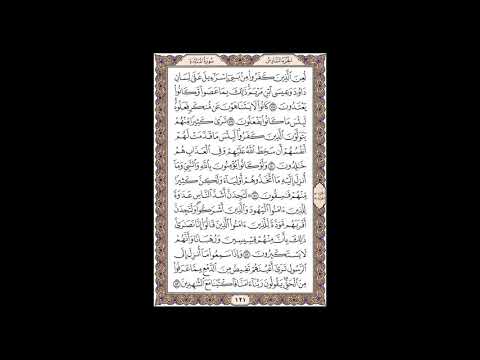 الجزء السادس سورة المائدة
لعن الذين كفروا من بني إسرءيل على لسان
داوۥد وعيسى ابن مريم ذلك بما عصوا وكانوا
يعتدون ٧٨ كانوا لا يتناهون عن منكر فعلوه
لبئس ما كانوا يفعلون ٧٩ ترى كثيرا منهم
يتولون الذين كفروا لبئس ما قدمت لهم
أنفسهم أن سخط الله عليهم وفي العذاب هم
خلدون ٨٠ ولو كانوا يؤمنون بالله والنبي وما
أنزل إليه ما اتخذوهم أولياء ولكن كثيرا
منهم فسقون ٨١ لتجدن أشد الناس عدوة
للذين ءامنوا اليهود والذين أشركوا ولتجدن
أقربهم مودة للذين ءامنوا الذين قالوا إنا نصرى
ذلك بأن منهم قسيسين ورهبانا وأنهم
لا يستكبرون ٨٢ وإذا سمعوا ما أنزل إلى
الرسول ترى أعينهم تفيض من الدمع مما عرفوا
من الحق يقولون ربنا ءامنا فاكتبنا مع الشهدين ٨٣
١٢١